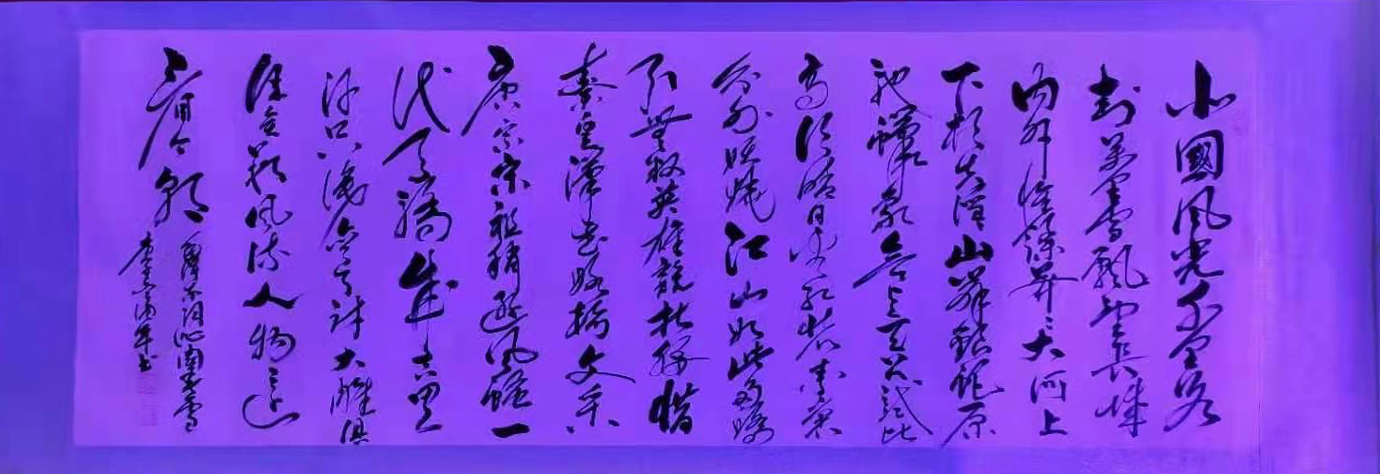 北國風光千里冰
封萬里雪飄望長城
内外惟餘莽莽大河上
下頓失滔滔山舞銀蛇原
馳蠟象欲與天公試比
高須晴日看紅裝素裹
分外妖嬈江山如此多嬌
引無數英雄競折腰惜
秦皇漢武略輸文采
唐宗宋祖稍遜風騷一
代天驕成吉思
汗只識彎弓射大雕俱
往矣數風流人物還
看今朝
詞沁園春雪
年書